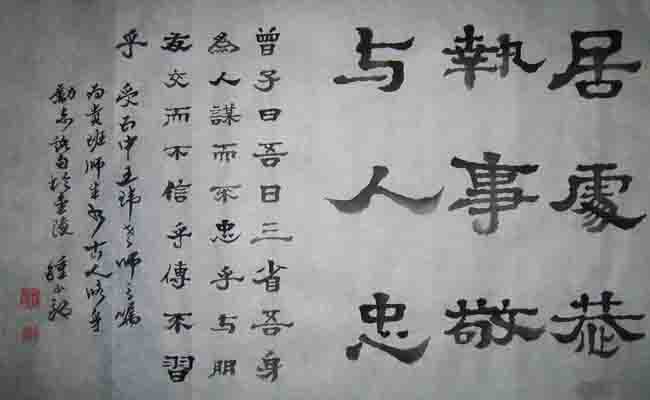 居處恭
執事敬
与人忠
曾子曰吾日三省吾身
為人謀而不忠乎与朋
友交而不信乎傳不習
乎 受中王玮老师之嘱
为贵班师生书古人修身
勵志语句于金陵